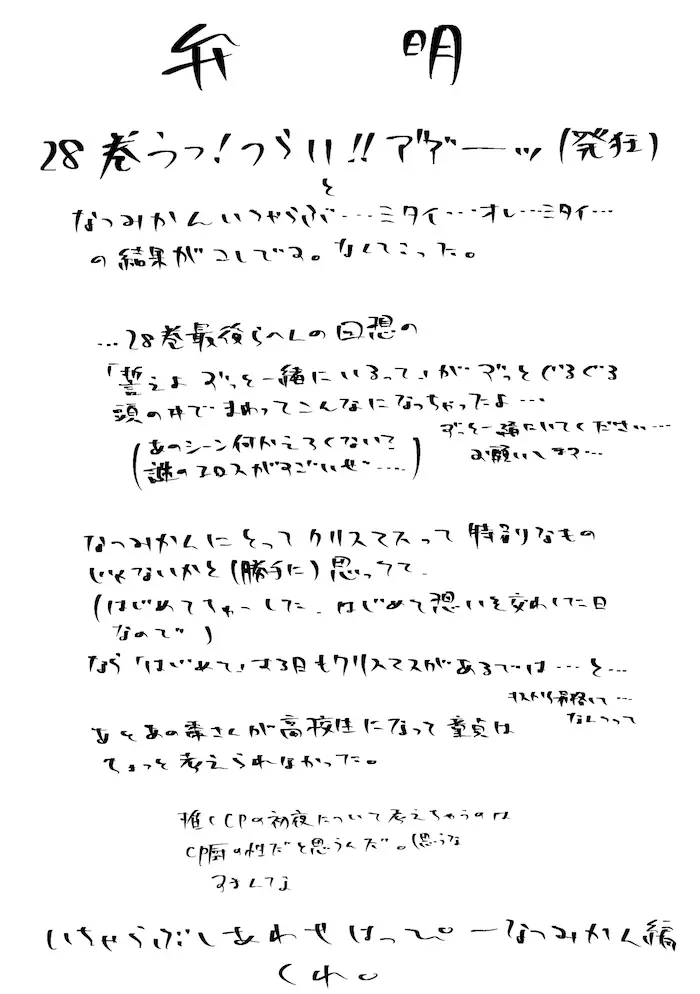 弁明
28巻うっ!つらい!!アアーーッ(発狂)
と
なつみかんいちゃらぶ…ミタイ…オレ…ミタイ…
の結果がコレです。なんてこった。
…28巻最後らへんの回想の
「誓えよ ずっと一緒にいるって」が ずっとぐるぐる
頭の中でまわってこんなになっちゃったよ…
(あのシーン何かえろくない?
謎のエロスがすごいぜ……)
ずっと一緒にいてください…
お願いします…
なつみかんにとってクリスマスって特別なもの
じゃないかと(勝手に)思ってて、
(はじめてちゅーした、はじめて想いを交わした日
なので)
なら「はじめて」する日もクリスマスがあるでは…と…
なんつって
あとあの棗さんが高校生になって童貞は
ちょっと考えられなかった。
推しCPの初夜について考えちゃうのは
CP厨の性だと思うんだ。(思うな
すみません
いちゃらぶしあわせはっぴーなつみかん編
くれ。